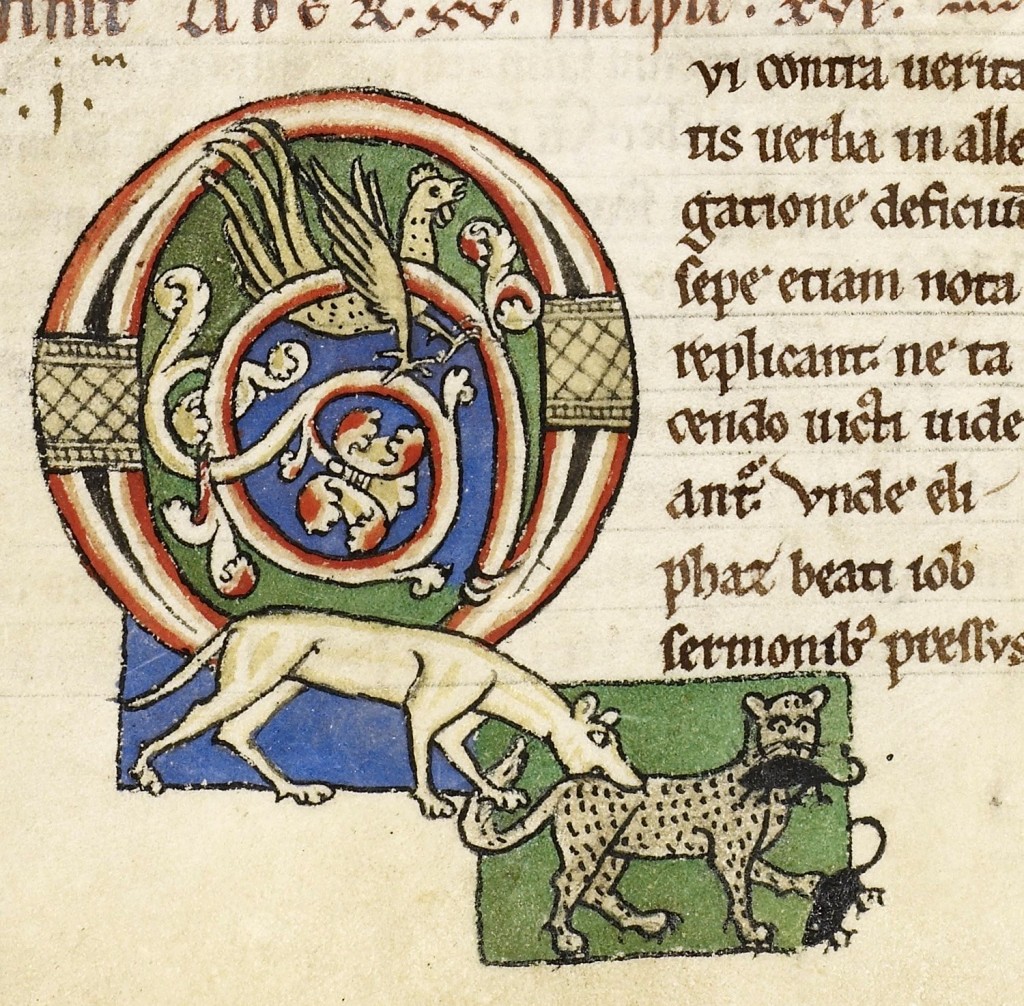 .xv. Incipit. xvi.
.j.
vi contra uerita
tis uerba in alle
gatione deficiu̅t
sepe etiam nota
replicant ne ta
cendo uicti uide
ant᷒ Vnde eli
phaz beati iob
sermonib᷒ pressus